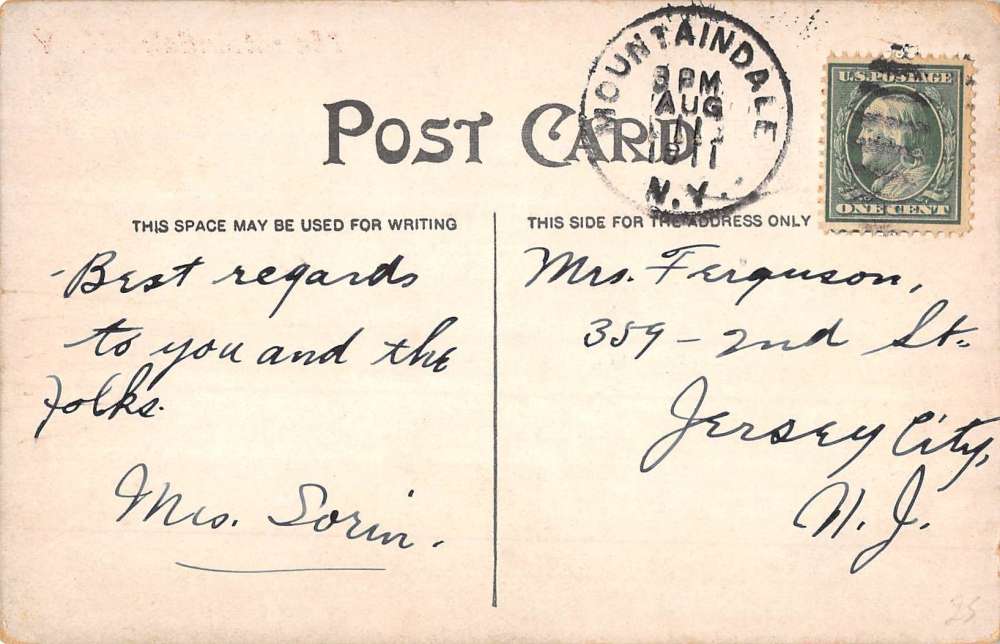 POST CARD
MOUNTAINDALE
PM
AUG
11
1911
N.Y.
U.S. POSTAGE
ONE CENT
THIS SPACE MAY BE USED FOR WRITING
THIS SIDE FOR THE ADDRESS ONLY
Best regards
to you and the
folks.
Mrs. Sorin.
Mrs. Ferguson,
359 - 2nd St.
Jersey City,
N. J.
25